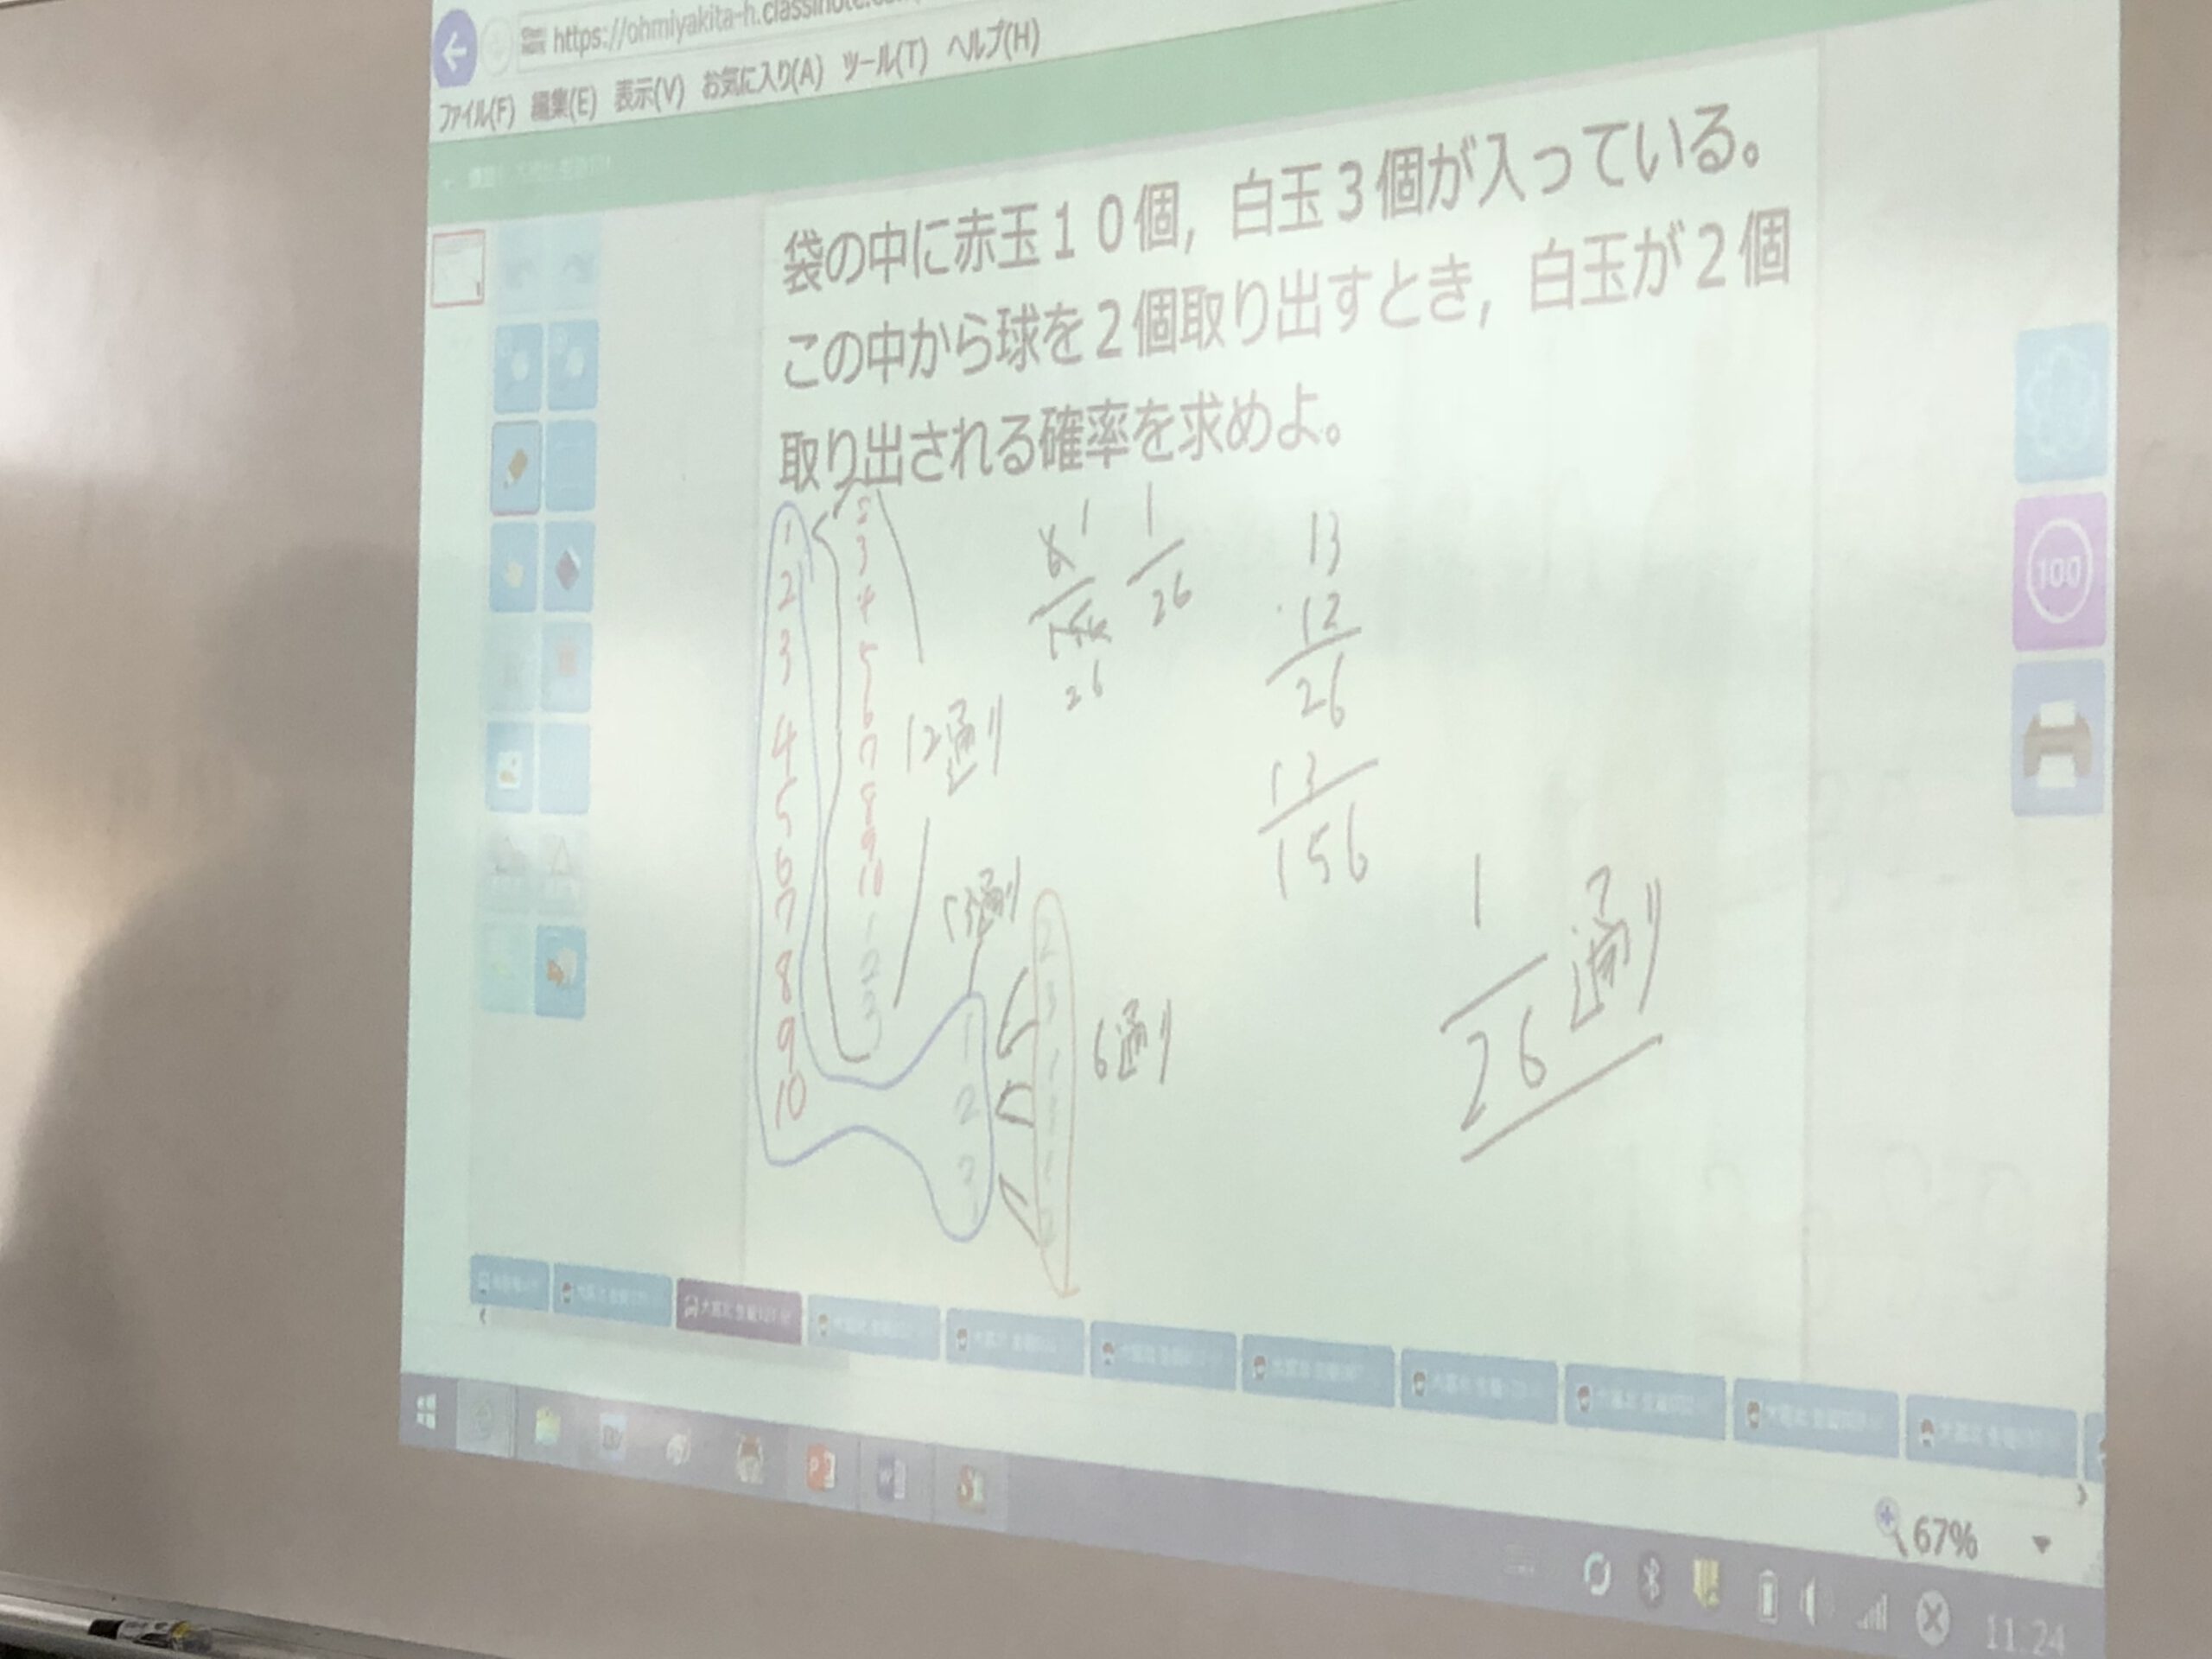 https://ohmiyakita-h.classinote.co
ファイル(F) 編集(E) 表示(V) お気に入り(A) ツール(T) ヘルプ(H)
袋の中に赤玉１０個，白玉３個が入っている。
この中から球を２個取り出すとき，白玉が２個
取り出される確率を求めよ。
1
2
3
4
5
6
7
8
9
10
2
3
4
5
6
7
8
9
10
1
2
3
12通り
13通り
1
2
3
6通り
6 1
156
26
1
26
13
12
26
13
156
1
26
通り
100
67%
11:24